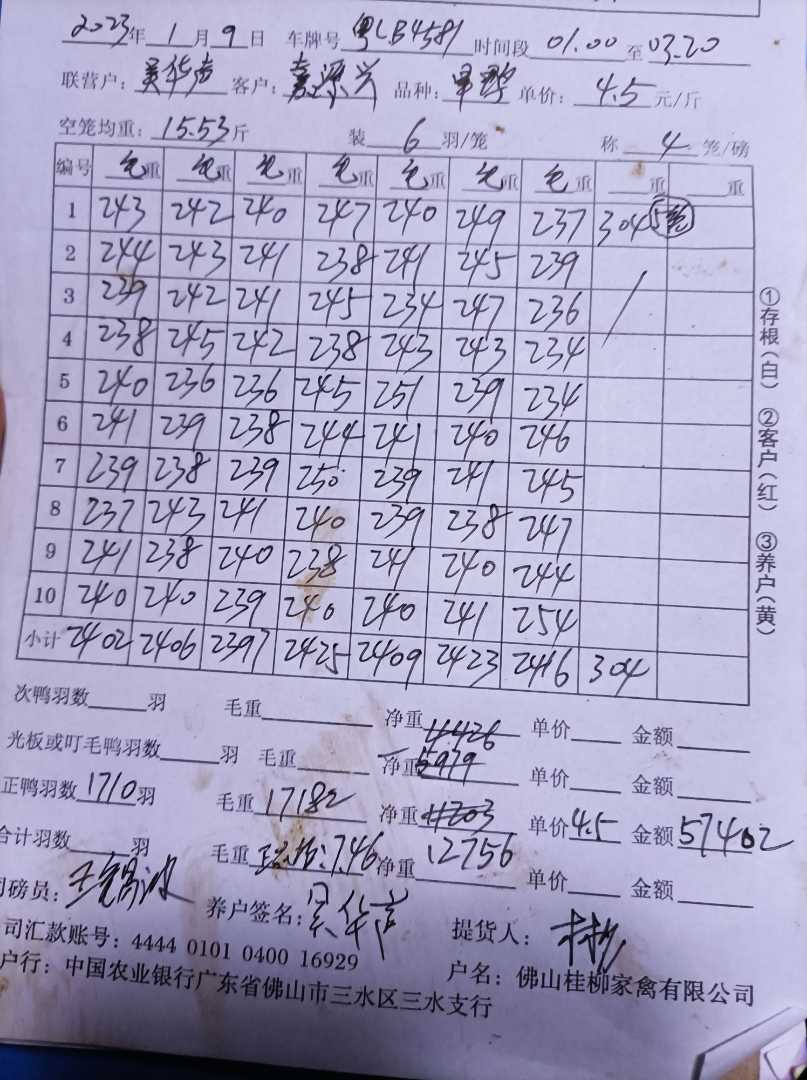 2023年 1月 9日 车牌号 粤LB4581 时间段 01.00 至 03.20
联营户: 吴华声 客户: 嘉源兴 品种: 单价: 4.5 元/斤
空笼均重: 15.53 斤 装 6 羽/笼 称 4 笼/磅
编号 毛重 毛重 毛重 毛重 毛重 毛重 毛重 重 重
1 243 242 240 247 240 249 237 304
2 244 243 241 238 241 245 239
3 239 242 241 245 234 247 236
4 238 245 242 238 243 243 234
5 240 236 236 245 251 239 234
6 241 239 238 244 241 240 246
7 239 238 239 250 239 241 245
8 237 243 241 240 239 238 247
9 241 238 240 238 241 240 244
10 240 240 239 240 240 241 254
小计 2402 2406 2397 2425 2409 2423 2416 304
次鸭羽数 羽 毛重 净重 4426 单价 金额
光板或叮毛鸭羽数 羽 毛重 净重 5979 单价 金额
正鸭羽数 1710 羽 毛重 17182 净重 11203 单价 4.5 金额 57402
合计羽数 羽 毛重 7.46 净重 12756 单价 金额
司磅员: 养户签名: 吴华声 提货人:
司汇款账号: 4444 0101 0400 16929 户名: 佛山桂柳家禽有限公司
户行: 中国农业银行广东省佛山市三水区三水支行
①存根(白) ②客户(红) ③养户(黄)